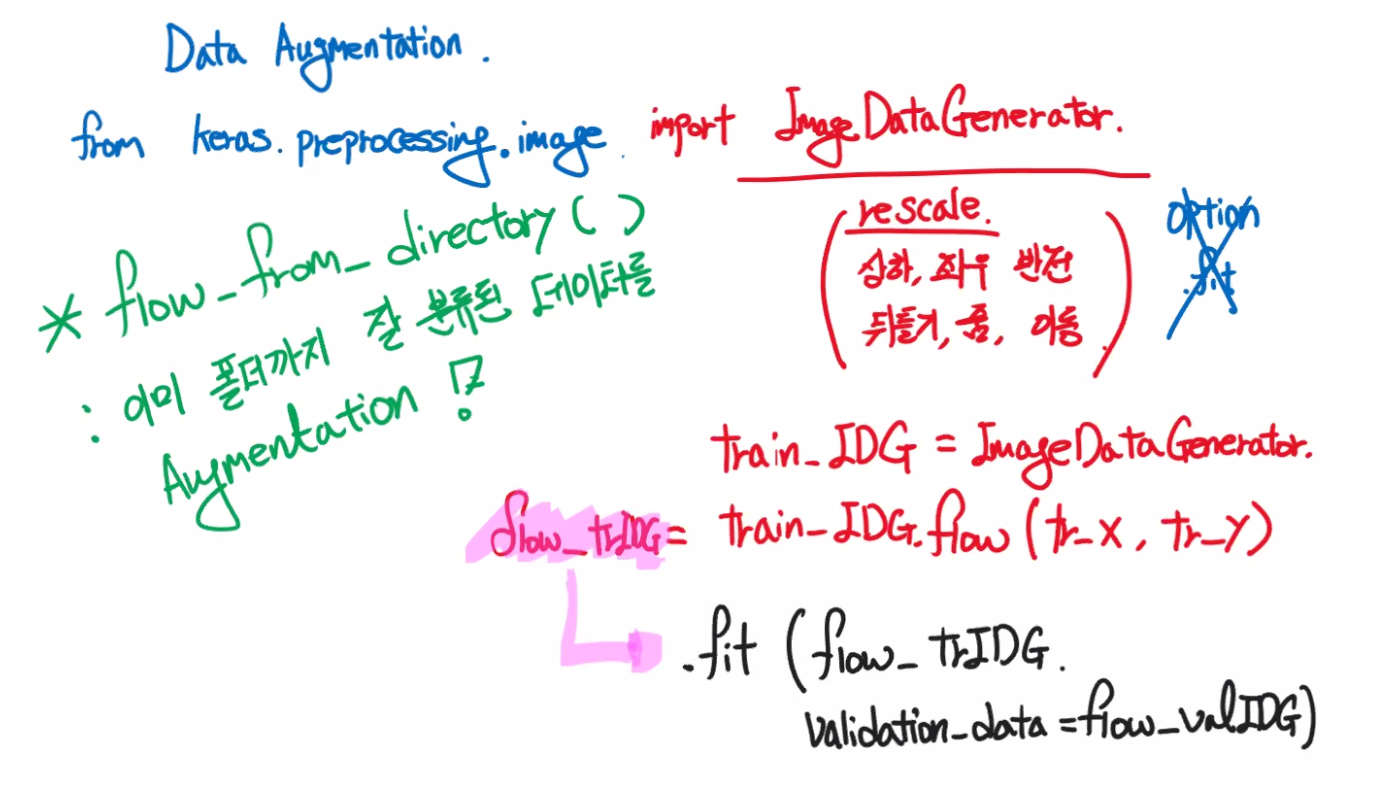 Data Augmentation.
from keras.preprocessing.image. import ImageDataGenerator.
(rescale.
상하, 좌우 반전
뒤틀기, 줌, 이동)
option
.fit
* flow_from_directory()
: 이미 폴더까지 잘 분류된 데이터를
Augmentation !?
train_IDG = ImageDataGenerator.
flow_trIDG = train_IDG.flow(tr_X, tr_Y)
.fit (flow_trIDG.
validation_data=flow_valIDG)